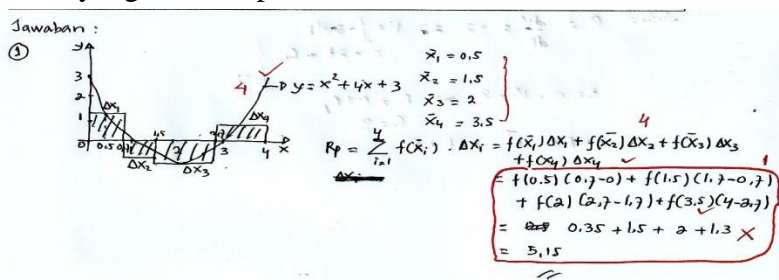 Jawaban :
①
y
3
2
1
0 0.5 0,7 1,5 2 2,7 3 4 x
Δx₁
Δx₂
Δx₃
Δx₄
4
y = x² + 4x + 3
x̄₁ = 0,5
x̄₂ = 1.5
x̄₃ = 2
x̄₄ = 3.5
4
Rp = 4 Σ i=1 f(x̄ᵢ) . Δxᵢ = f(x̄₁)Δx₁ + f(x̄₂)Δx₂ + f(x̄₃) Δx₃
+ f(x₄) Δx₄
1
= f(0.5) (0,7-0) + f(1.5) (1,7-0,7)
+ f(2) (2,7-1,7) + f(3,5) (4-2,7)
= 0.35 + 1.5 + 2 + 1.3
= 5,15